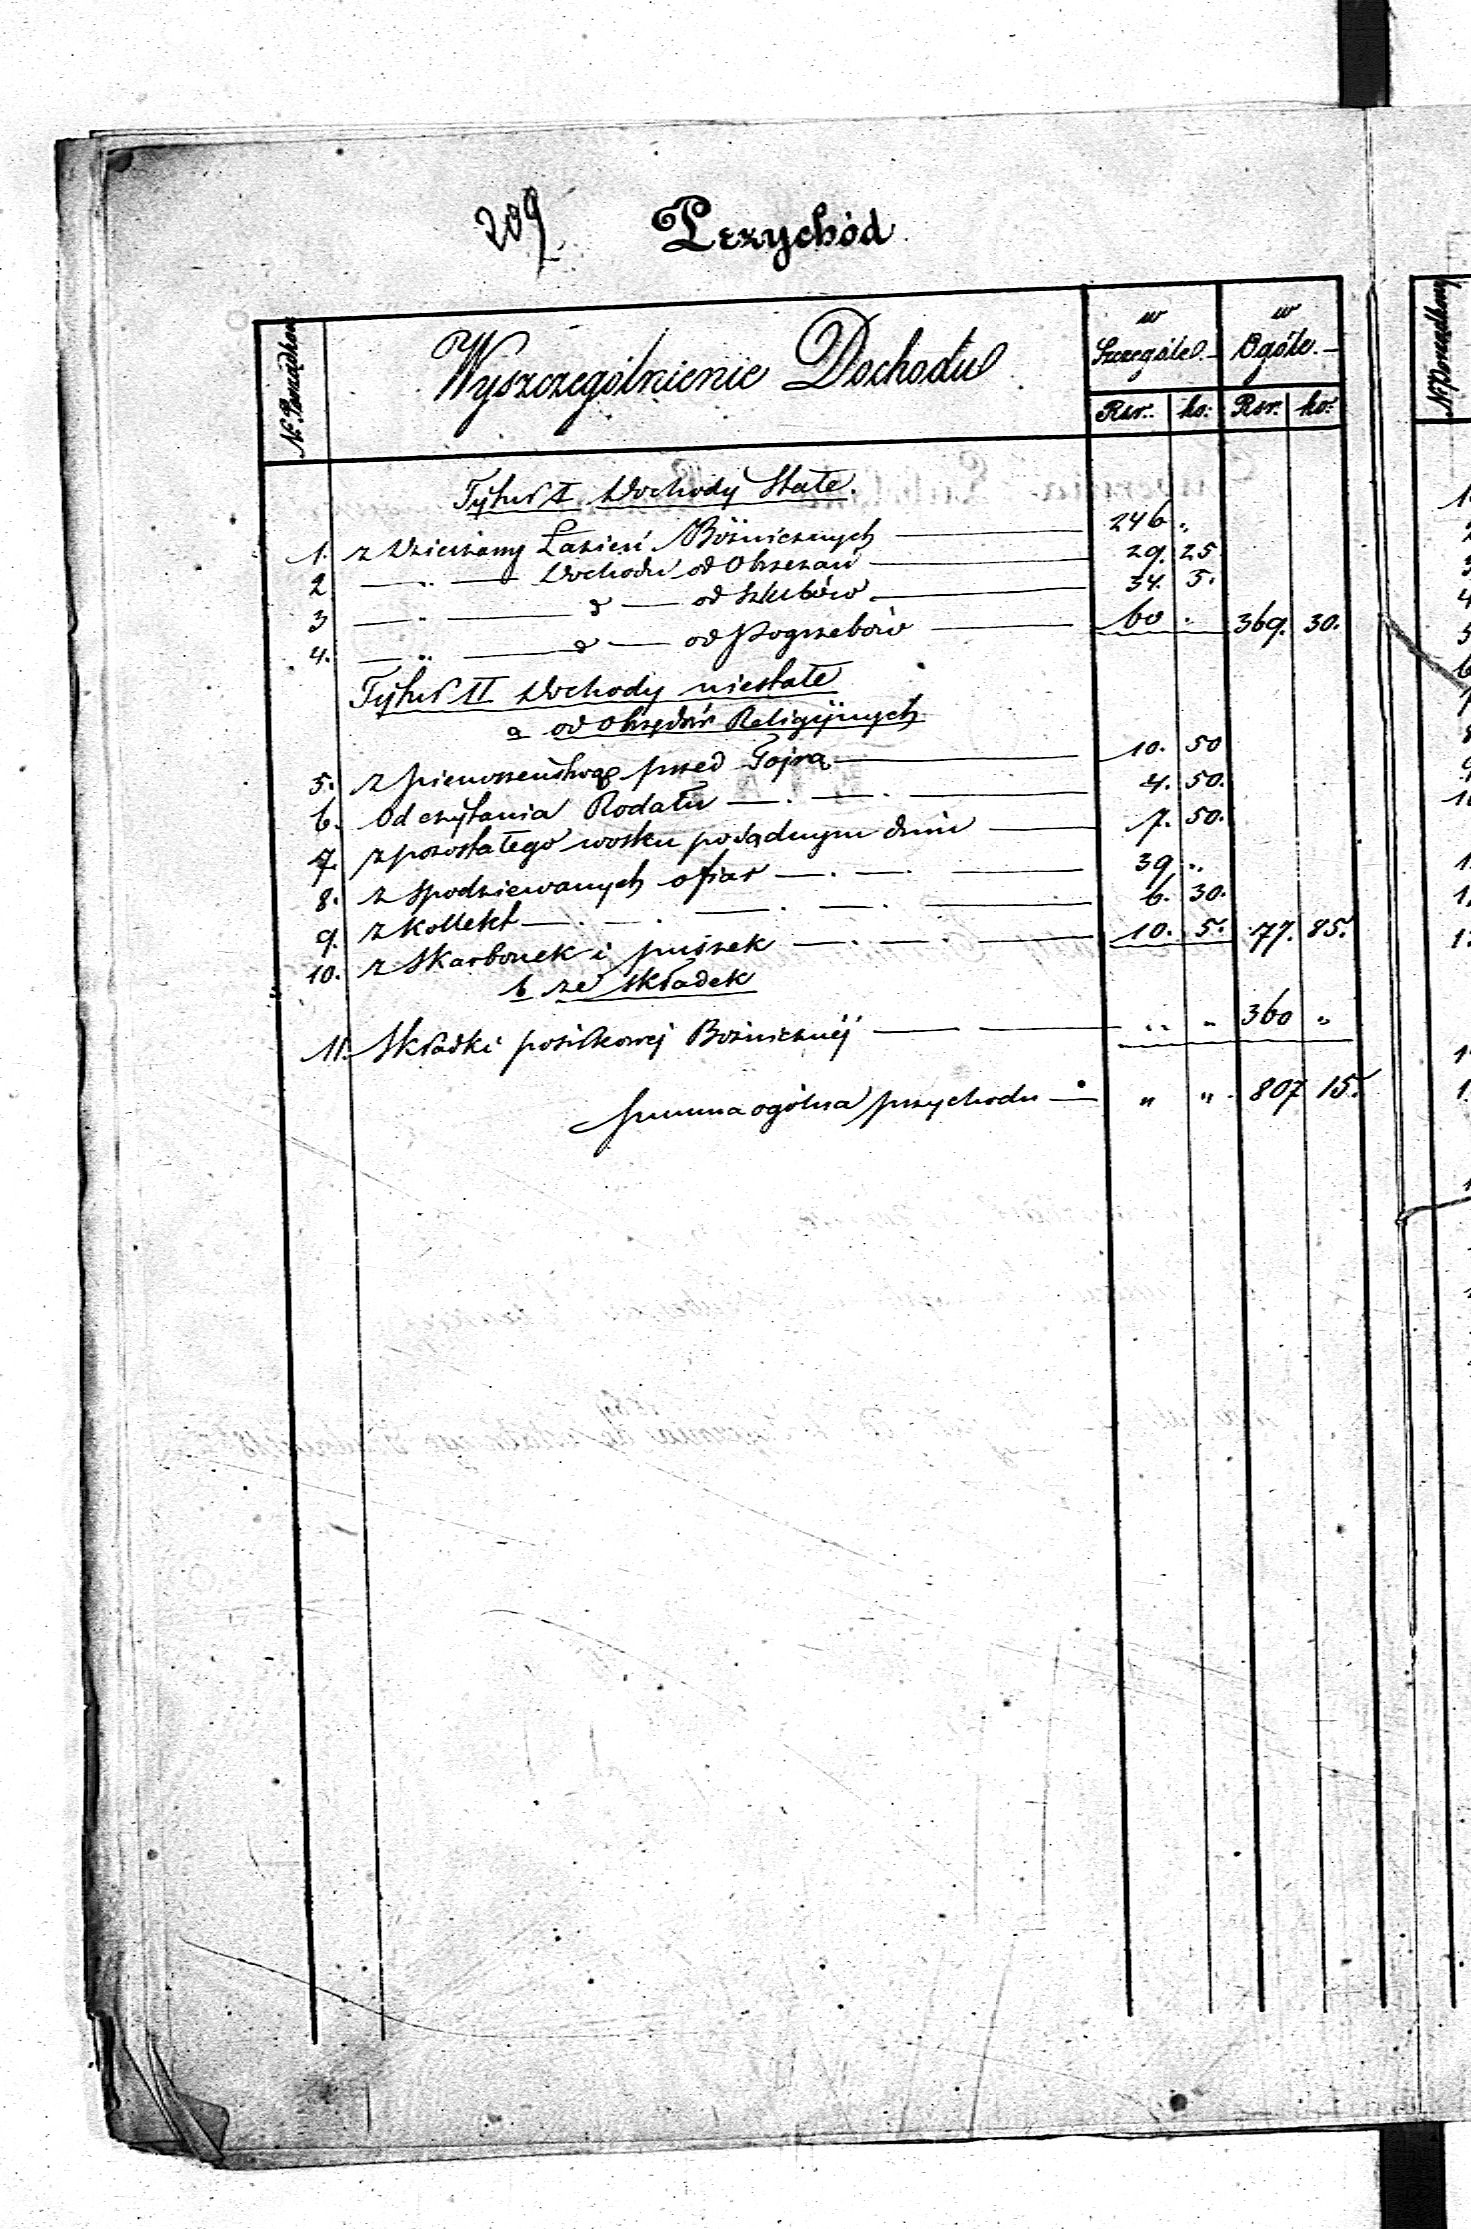 209
Przychód
Nr. Porządkow
Wyszczególnienie Dochodu
w Szczególe.
w Ogóle.
Rsr. ko: Rsr. ko:
Tytuł I Dochody Stałe.
1. z Dzierżawy Łazień Bóżnicznych 246 "
2 — " — Dochodu od Obrzezań 29. 25
3 — " — d — od Szlubów 34. 5.
4. — " — d — od Pogrzebów 60 . 369. 30.
Tytuł II Dochody niestałe
a od obrzędów Religijnych
5. z pierwszeństwa przed Tojrą 10. 50
6. Od czytania Rodału 4. 50.
7. z pozostałego wosku po Sądnym dniu 7. 50.
8. z Spodziewanych ofiar 39 "
9. z Kollekt 6. 30.
10. z Skarbonek i puszek 10. 5. 77. 85.
b ze składek
11. Składki posiłkowej Bożnicznéj " " 360 "
Summa ogólna przychodu " " 807 15.
Nr. Porządkowy